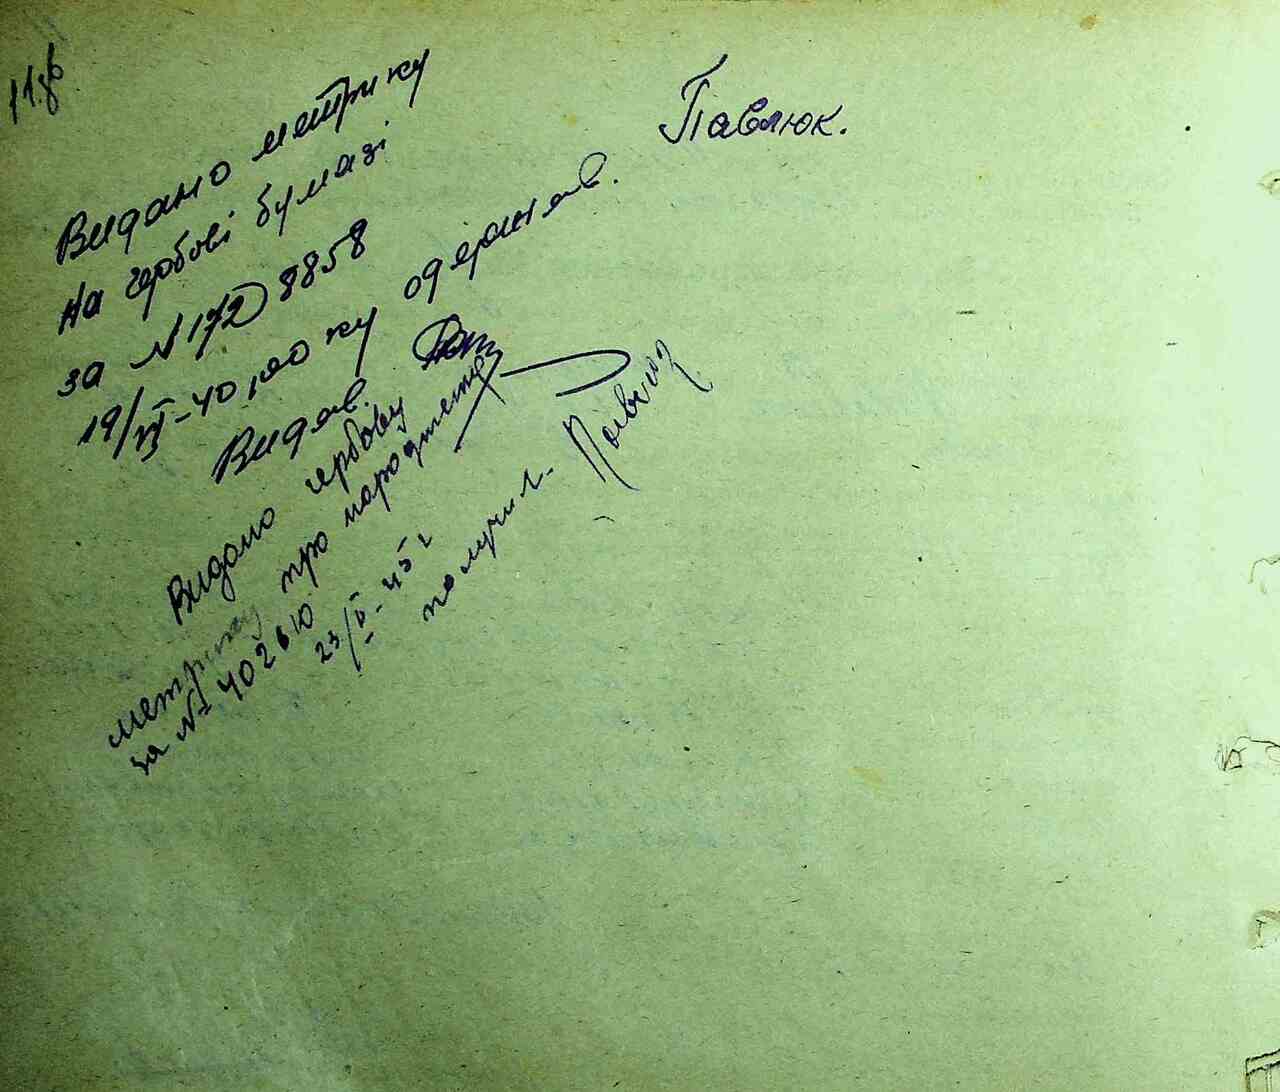 Видано метрику
на гербові бумазі
за N 172 8858
19/VI-40, року одержав. Павлюк.
Видав.
Видано гербову
метрику про народження
за № 402610
23/V-45 г
получил.